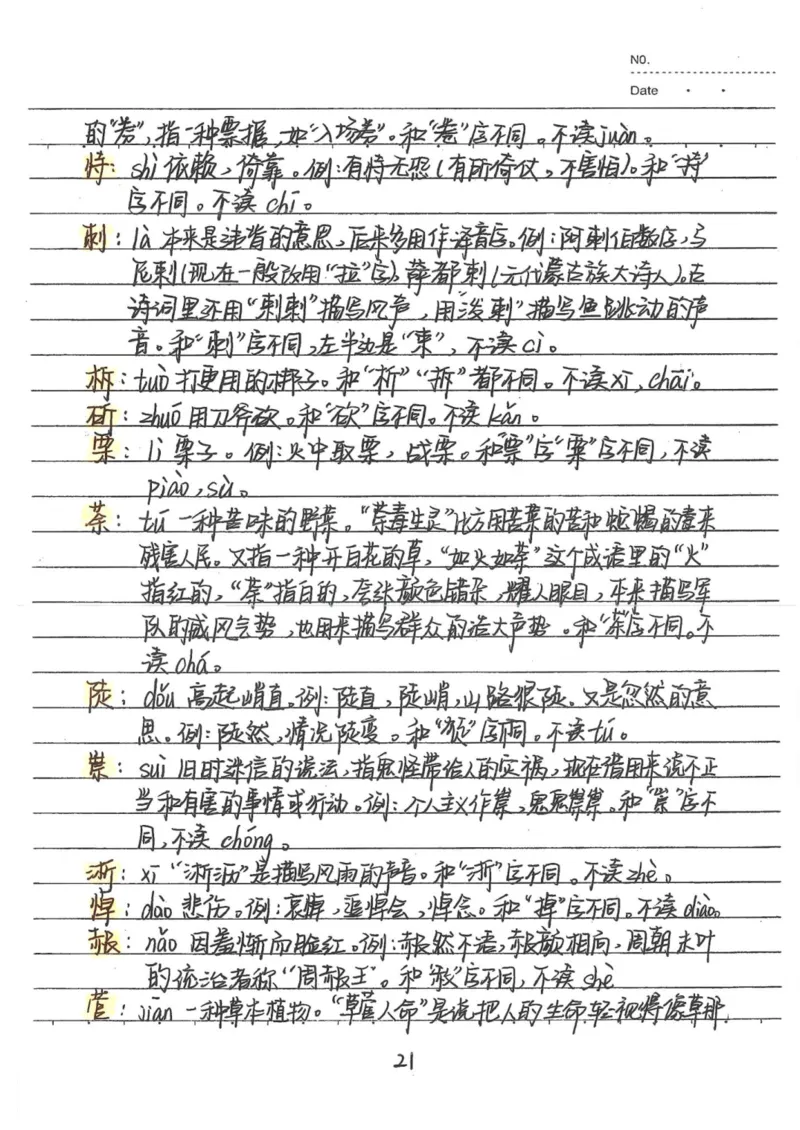 NO.
Date
的“券”，指一种票据，如“入场券”。和“卷”字不同。不读juàn。
恃：shì 依赖，倚靠。例：有恃无恐（有所倚仗。不害怕）。和“持”
字不同。不读 chí。
剌：là 本来是违背的意思，后来多用作译音字。例：阿剌伯数字，马
尼剌（现在一般改用“拉”字），萨都剌（元代蒙古族大诗人）。古
诗词里还用“剌剌”描写风声，用“泼剌”描写鱼跳动的声
音。和“刺”字不同，左半边是“束”，不读 cì。
柝：tuò 打更用的梆子。和“析”“拆”都不同。不读xī，chāi。
斫：zhuó 用刀斧砍。和“砍”字不同。不读 kǎn。
栗：lì 栗子。例：火中取栗，战栗。和“票”字“粟”字不同，不读
piào，sù。
荼：tú 一种苦味的野菜。“荼毒生灵”比方用苦菜的苦和蛇蝎的毒来
残害人民。又指一种开白花的草，“如火如荼”这个成语里的“火”
指红的，“荼”指白的，夸张颜色错杂，耀人眼目，本来描写军
队的威风气势，也用来描写群众的浩大声势。和“茶”字不同。不
读chá。
陡：dǒu 高起峭直。例：陡直，陡峭，山路很陡。又是忽然的意
思。例：陡然，情况陡变。和“徒”字不同。不读tú。
祟：suì 旧时迷信的说法，指鬼怪带给人的灾祸，现在借用来说不正
当和有害的事情或行动。例：个人主义作祟，鬼鬼祟祟。和“崇”字不
同，不读 chóng。
淅：xī “淅沥”是描写风雨的声音。和“浙”字不同。不读zhè。
悼：dào 悲伤。例：哀悼，追悼会，悼念。和“掉”字不同。不读 diào。
赧：nǎn 因羞惭而脸红。例：赧然不语，赧颜相向，周朝末叶
的统治者称“周赧王”。和“赦”字不同，不读 shè
菅：jiān 一种草本植物。“草菅人命”是说把人的生命轻视得像草那
21